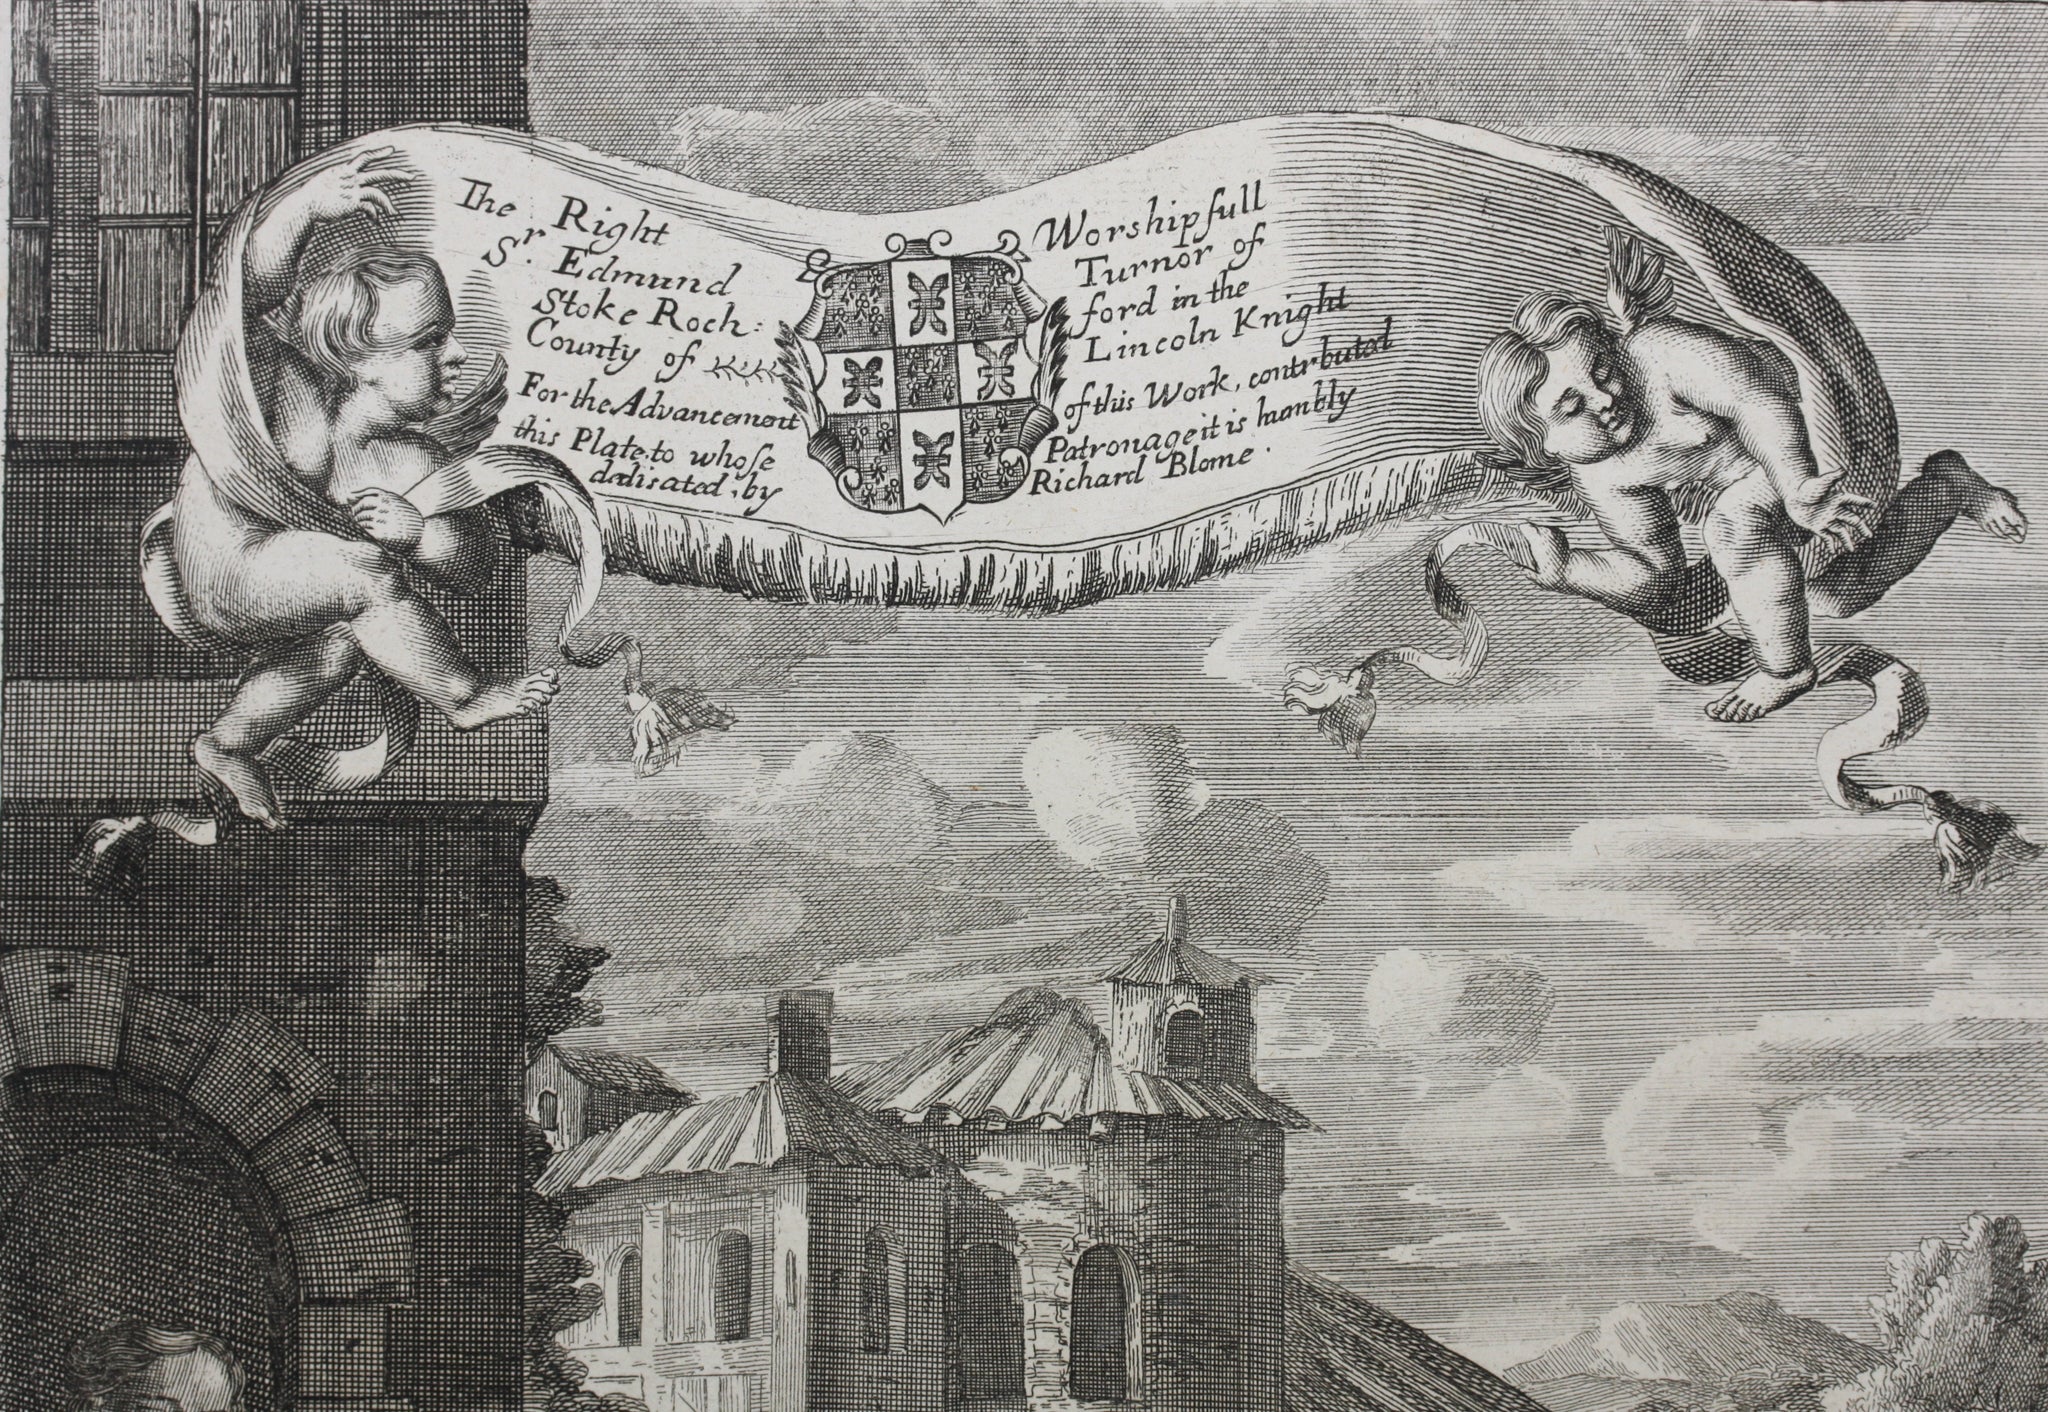 The Right Worshipfull
Sr. Edmund Turnor of
Stoke Roch: ford in the
County of Lincoln Knight
For the Advancement of this Work, contributed
this Plate, to whose Patronage it is humbly
dedicated, by Richard Blome.